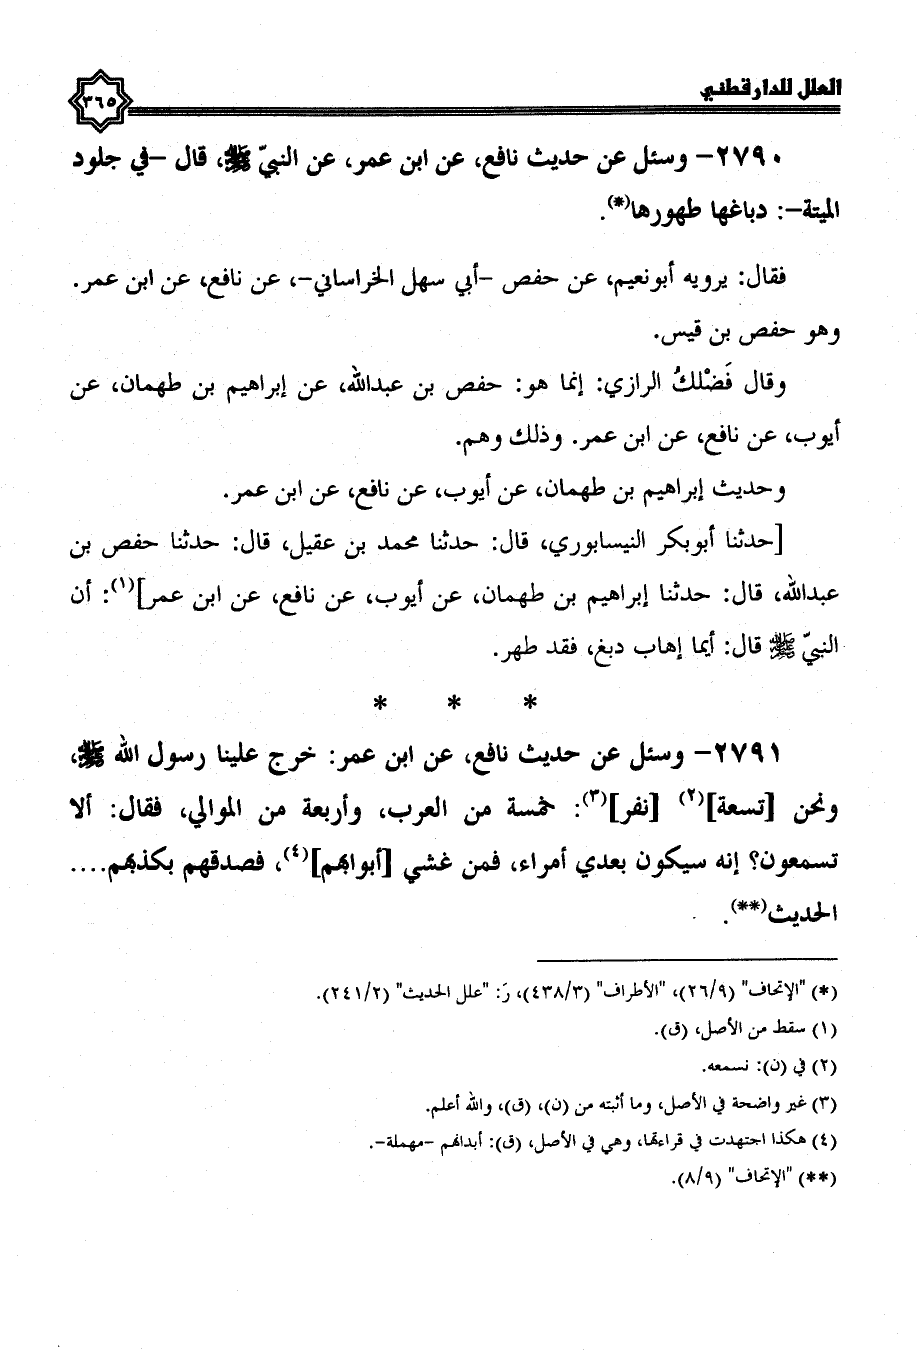 العلل للدارقطني
٣٦٥
٢٧٩٠- وسئل عن حديث نافع، عن ابن عمر، عن النبيّ ﷺ، قال -في جلود
الميتة-: دباغها طهورها(*).
فقال: يرويه أبونعيم، عن حفص -أبي سهل الخراساني-، عن نافع، عن ابن عمر.
وهو حفص بن قيس.
وقال فَضْلكُ الرازي: إنما هو: حفص بن عبدالله، عن إبراهيم بن طهمان، عن
أيوب، عن نافع، عن ابن عمر. وذلك وهم.
وحديث إبراهيم بن طهمان، عن أيوب، عن نافع، عن ابن عمر.
[حدثنا أبوبكر النيسابوري، قال: حدثنا محمد بن عقيل، قال: حدثنا حفص بن
عبدالله، قال: حدثنا إبراهيم بن طهمان، عن أيوب، عن نافع، عن ابن عمر](١): أن
النبيّ ﷺ قال: أيما إهاب دبغ، فقد طهر.
* * *
٢٧٩١- وسئل عن حديث نافع، عن ابن عمر: خرج علينا رسول الله ﷺ،
ونحن [تسعة](٢) [نفر](٣): خمسة من العرب، وأربعة من الموالي، فقال: ألا
تسمعون؟ إنه سيكون بعدي أمراء، فمن غشي [أبوابهم](٤)، فصدقهم بكذبهم....
الحديث(**).
(*) "الإتحاف" (٢٦/٩)، "الأطراف" (٤٣٨/٣)، رَ: "علل الحديث" (٢٤١/٢).
(١) سقط من الأصل، (ق).
(٢) في (ن): نسمعه.
(٣) غير واضحة في الأصل، وما أثبته من (ن)، (ق)، والله أعلم.
(٤) هكذا اجتهدت في قراءتها، وهي في الأصل، (ق): أبدالهم -مهملة-.
(**) "الإتحاف" (٨/٩).